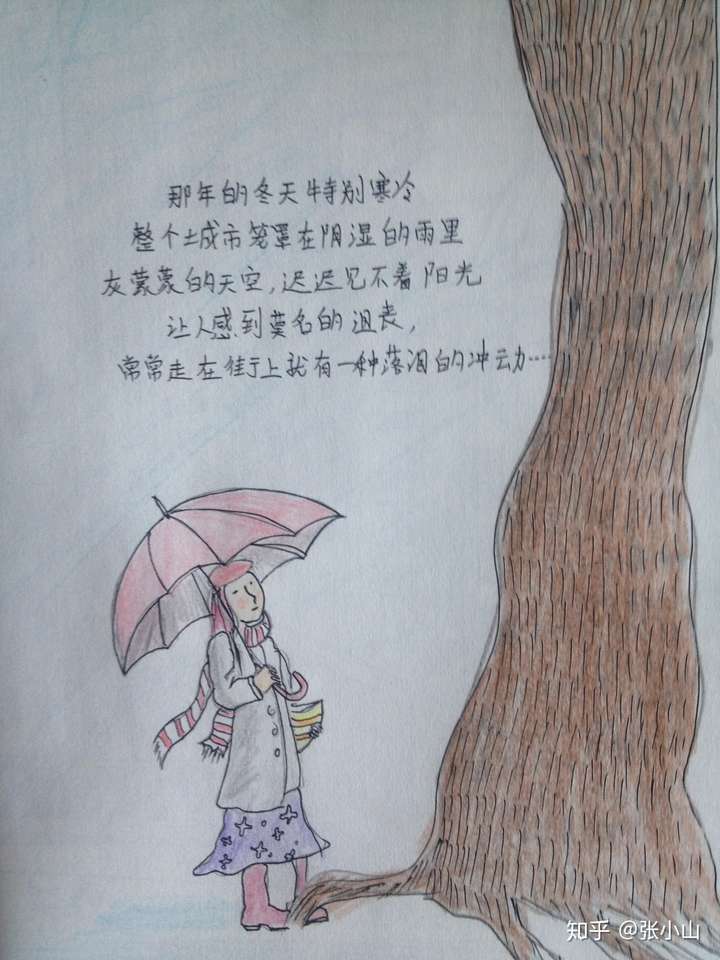 那年的冬天特别寒冷
整个城市笼罩在阴湿的雨里
灰蒙蒙的天空,迟迟见不着阳光
让人感到莫名的沮丧,
常常走在街上就有一种落泪的冲动……
知乎 @张小山